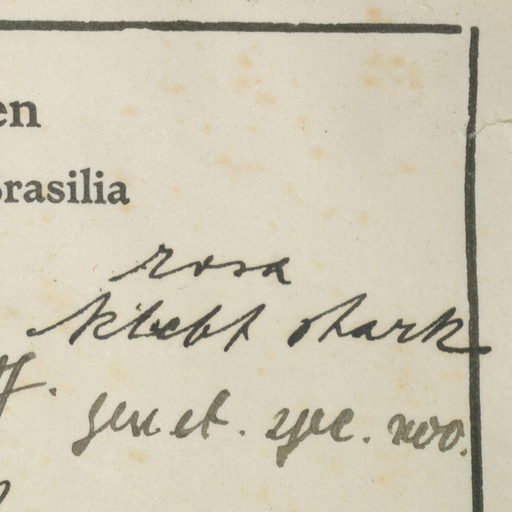 en
Brasilia
rosa
klebt stark
ff.
gen. et. spec. nov.